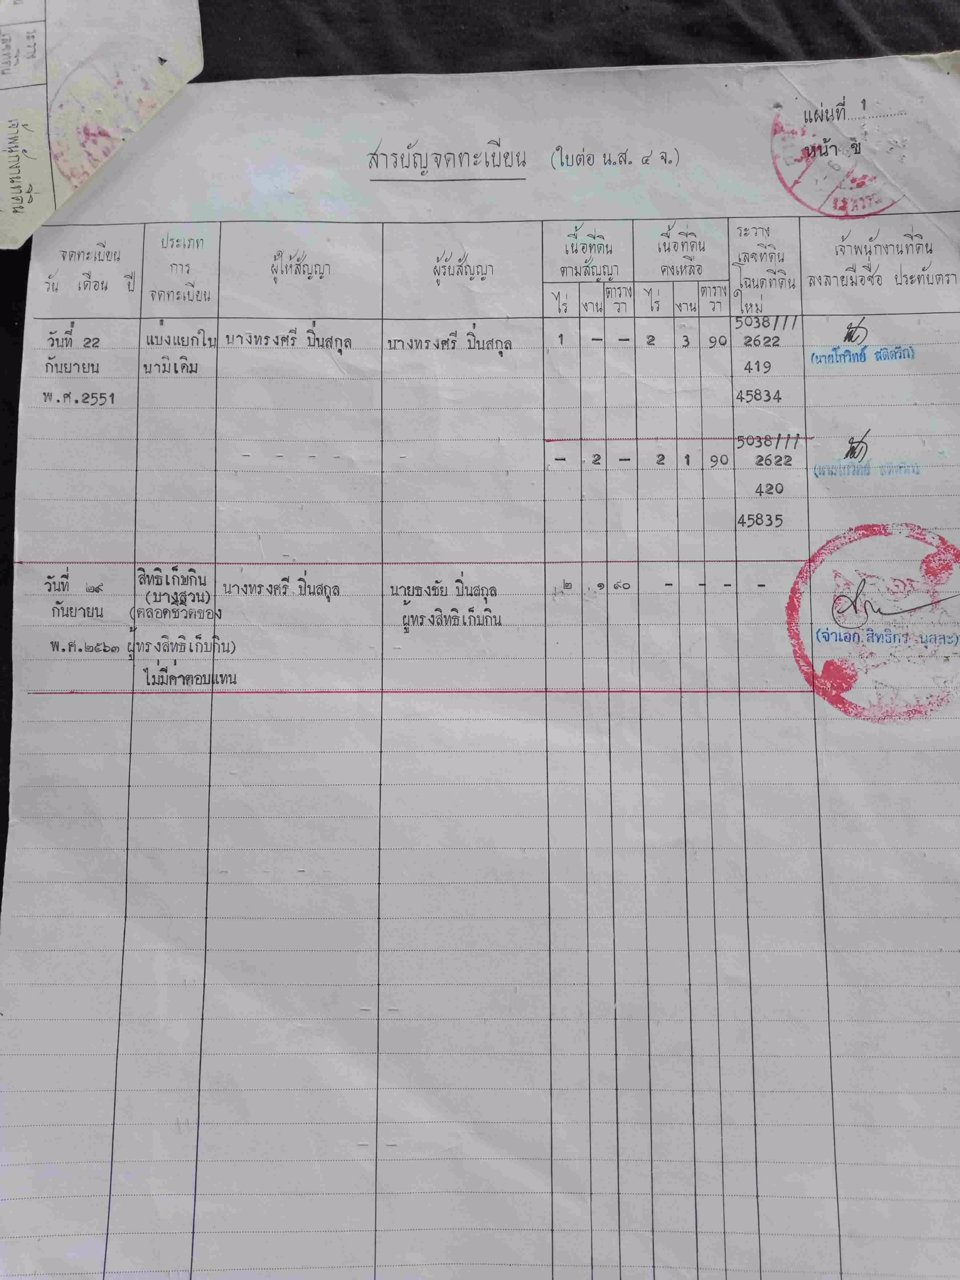 แผ่นที่ 1
หน้า ข
สารบัญจดทะเบียน (ใบต่อ น.ส. ๔ จ.)
จดทะเบียน
วัน เดือน ปี
ประเภท
การ
จดทะเบียน
ผู้ให้สัญญา
ผู้รับสัญญา
เนื้อที่ดิน
ตามสัญญา
ไร่ งาน ตาราง
วา
เนื้อที่ดิน
คงเหลือ
ไร่ งาน ตาราง
วา
ระวาง
เลขที่ดิน
โฉนดที่ดิน
ใหม่
เจ้าพนักงานที่ดิน
ลงลายมือชื่อ ประทับตรา
5038///
วันที่ 22 แบ่งแยกใน นางทรงศรี ปิ่นสกุล นางทรงศรี ปิ่นสกุล 1 – – 2 3 90 2622
กันยายน นามเดิม 419
พ.ศ.2551 45834
5038///
– – – – – – 2 – 2 1 90 2622
420
45835
วันที่ ๒๙ สิทธิเก็บกิน นางทรงศรี ปิ่นสกุล นายธงชัย ปิ่นสกุล ๒ ๑ ๙๐ – – – –
(บางส่วน)
กันยายน (ตลอดชีวิตของ ผู้ทรงสิทธิเก็บกิน
พ.ศ.๒๕๖๓ ผู้ทรงสิทธิเก็บกิน) (จ่าเอก สิทธิกร
ไม่มีค่าตอบแทน